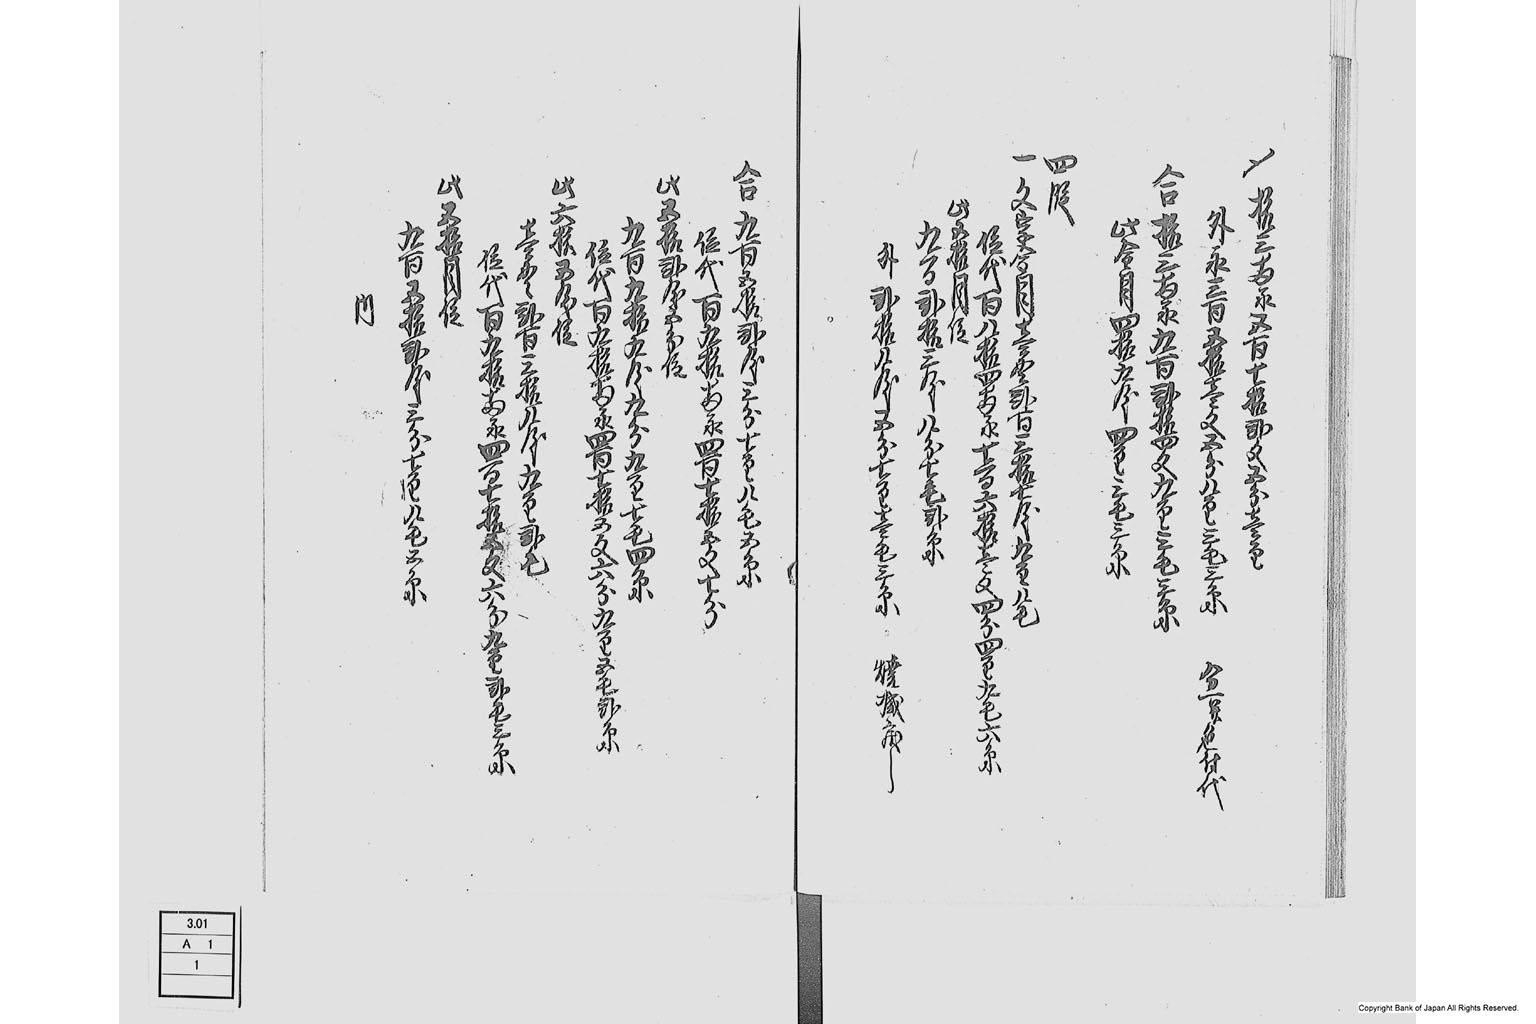 〆拾三両永五百七拾弐文五分壱厘
外永三百五拾壱文五分八厘三毛三糸
合拾三両永九百弐拾四文九厘三毛三糸
此目四拾九匁四厘三毛三糸
四段
一文字金目壱貫弐百三拾七匁九厘八毛
位代百八拾四両永七百六拾壱文四分四厘九毛六糸
此五拾目位
九百弐拾三匁八分七毛弐糸
外弐拾八匁五分七厘壱毛三糸
合九百五拾弐匁三分七厘八毛五糸
位代百九拾両永四百七拾五文七分
此五拾弐匁五分位
九百九拾九匁九分九厘七毛四糸
位代百九拾両永四百七拾五文六分九厘五毛弐糸
此六拾五匁位
壱貫弐百三拾八匁九厘弐毛
位代百九拾両永四百七拾五文六分九厘弐毛三糸
此五拾目位
九百五拾弐匁三分七厘八毛五糸
内
3.01
A 1
1
Copyright Bank of Japan All Rights Reserved.